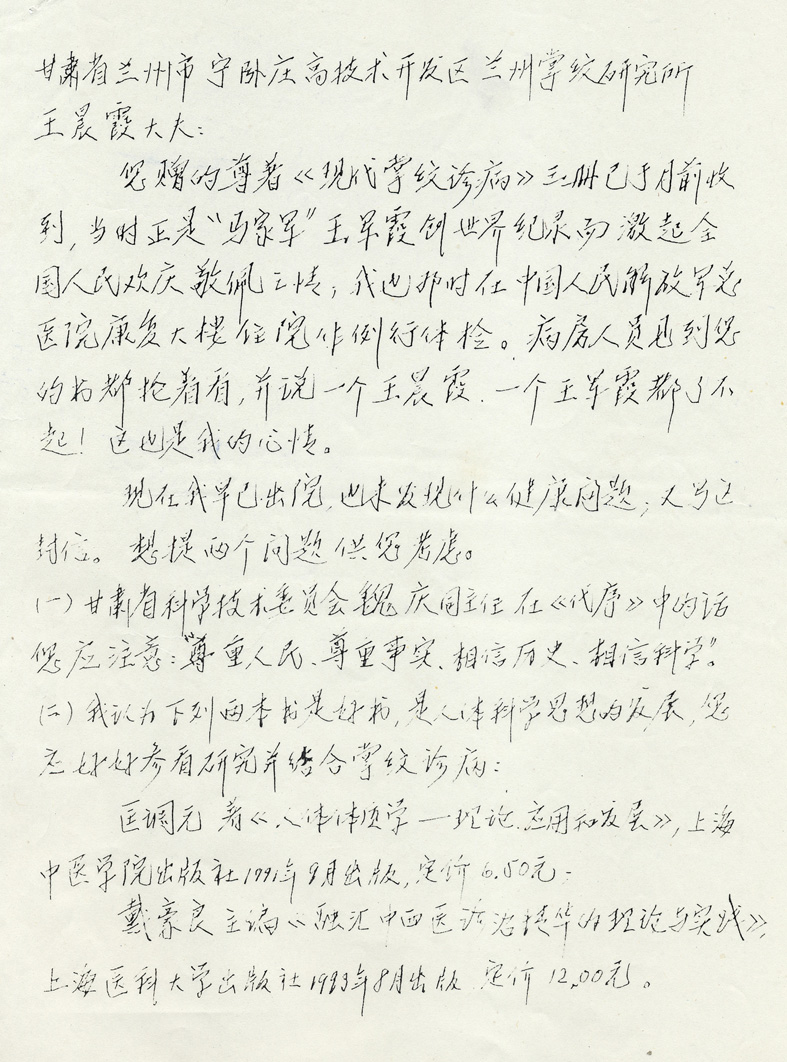 甘肃省兰州市宁卧庄高技术开发区兰州掌纹研究所
王晨霞大夫：
您赠的尊著《现代掌纹诊病》三册已于月前收
到，当时正是“马家军”王军霞创世界纪录而激起全
国人民欢庆敬佩之情；我也那时在中国人民解放军总
医院康复大楼住院作例行体检。病房人员见到您
的书都抢着看，并说一个王晨霞、一个王军霞都了不
起！这也是我的心情。
现在我早已出院，也未发现什么健康问题，又写这
封信。想提两个问题供您考虑。
(一)甘肃省科学技术委员会魏庆同主任在《代序》中的话
您应注意：“尊重人民、尊重事实、相信历史、相信科学”。
(二)我认为下列两本书是好书，是人体科学思想的发展，您
应好好参看研究并结合掌纹诊病：
匡调元著《人体体质学—理论、应用和发展》，上海
中医学院出版社1991年9月出版，定价6.50元；
戴豪良主编《融汇中西医诊治精华的理论与实践》，
上海医科大学出版社1993年8月出版，定价12.00元。